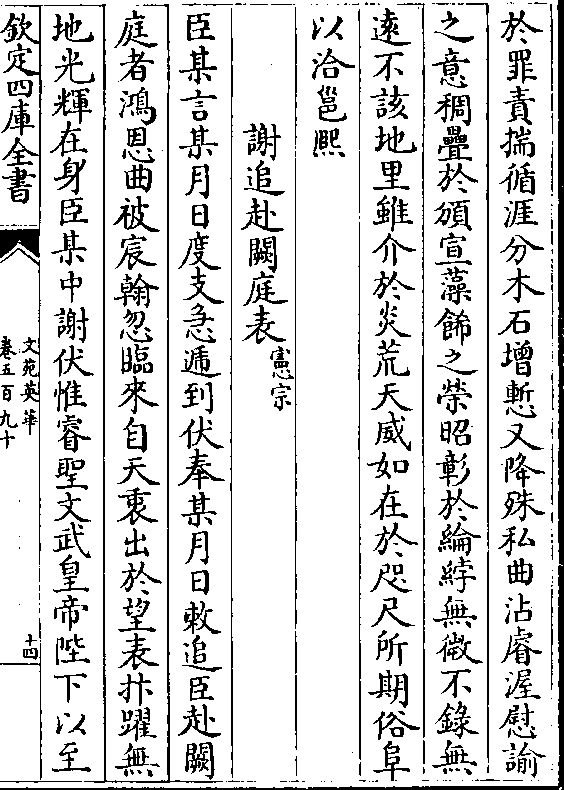 於罪責揣循涯分木石增慙又降殊私曲沾睿渥慰諭
之意稠疊於頒宣藻飾之榮昭彰於綸綍無微不錄無
遠不該地里雖介於炎荒天威如在於咫尺所期俗阜
以洽邕熙
謝追赴闕庭表憲宗
臣某言某月日度支急遞到伏奉某月日敕追臣赴闕
庭者鴻恩曲被宸翰忽臨來自天衷出於望表抃躍無
地光輝在身臣某中謝伏惟睿聖文武皇帝陛下以至
欽定四庫全書
文苑英華
卷五百九十
十四